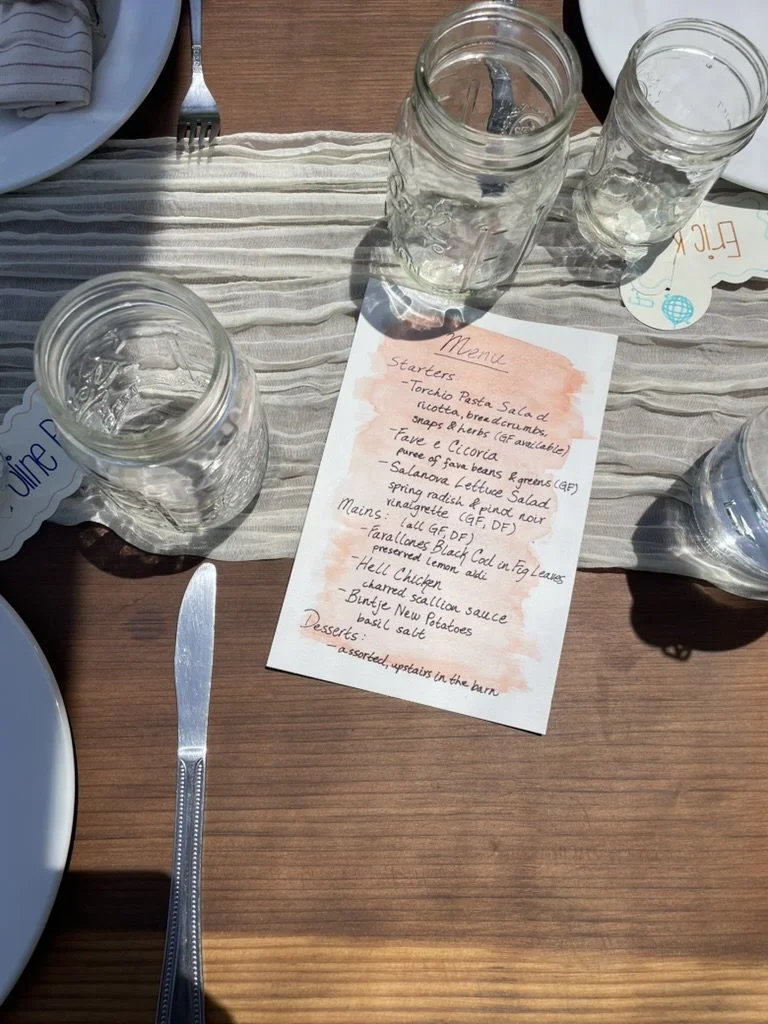 Menu
Starters
- Torchio Pasta Salad
ricotta, breadcrumbs,
snaps & herbs (GF available)
- Fave e Cicoria
puree of fava beans & greens (GF)
- Salanova Lettuce Salad
spring radish & pinot noir
vinaigrette (GF, DF)
Mains: (all GF, DF)
- Farallones Black Cod in Fig Leaves
preserved lemon aidi
- Hell Chicken
charred scallion sauce
- Bintje New Potatoes
basil salt
Desserts:
- assorted, upstairs in the barn
Eric K